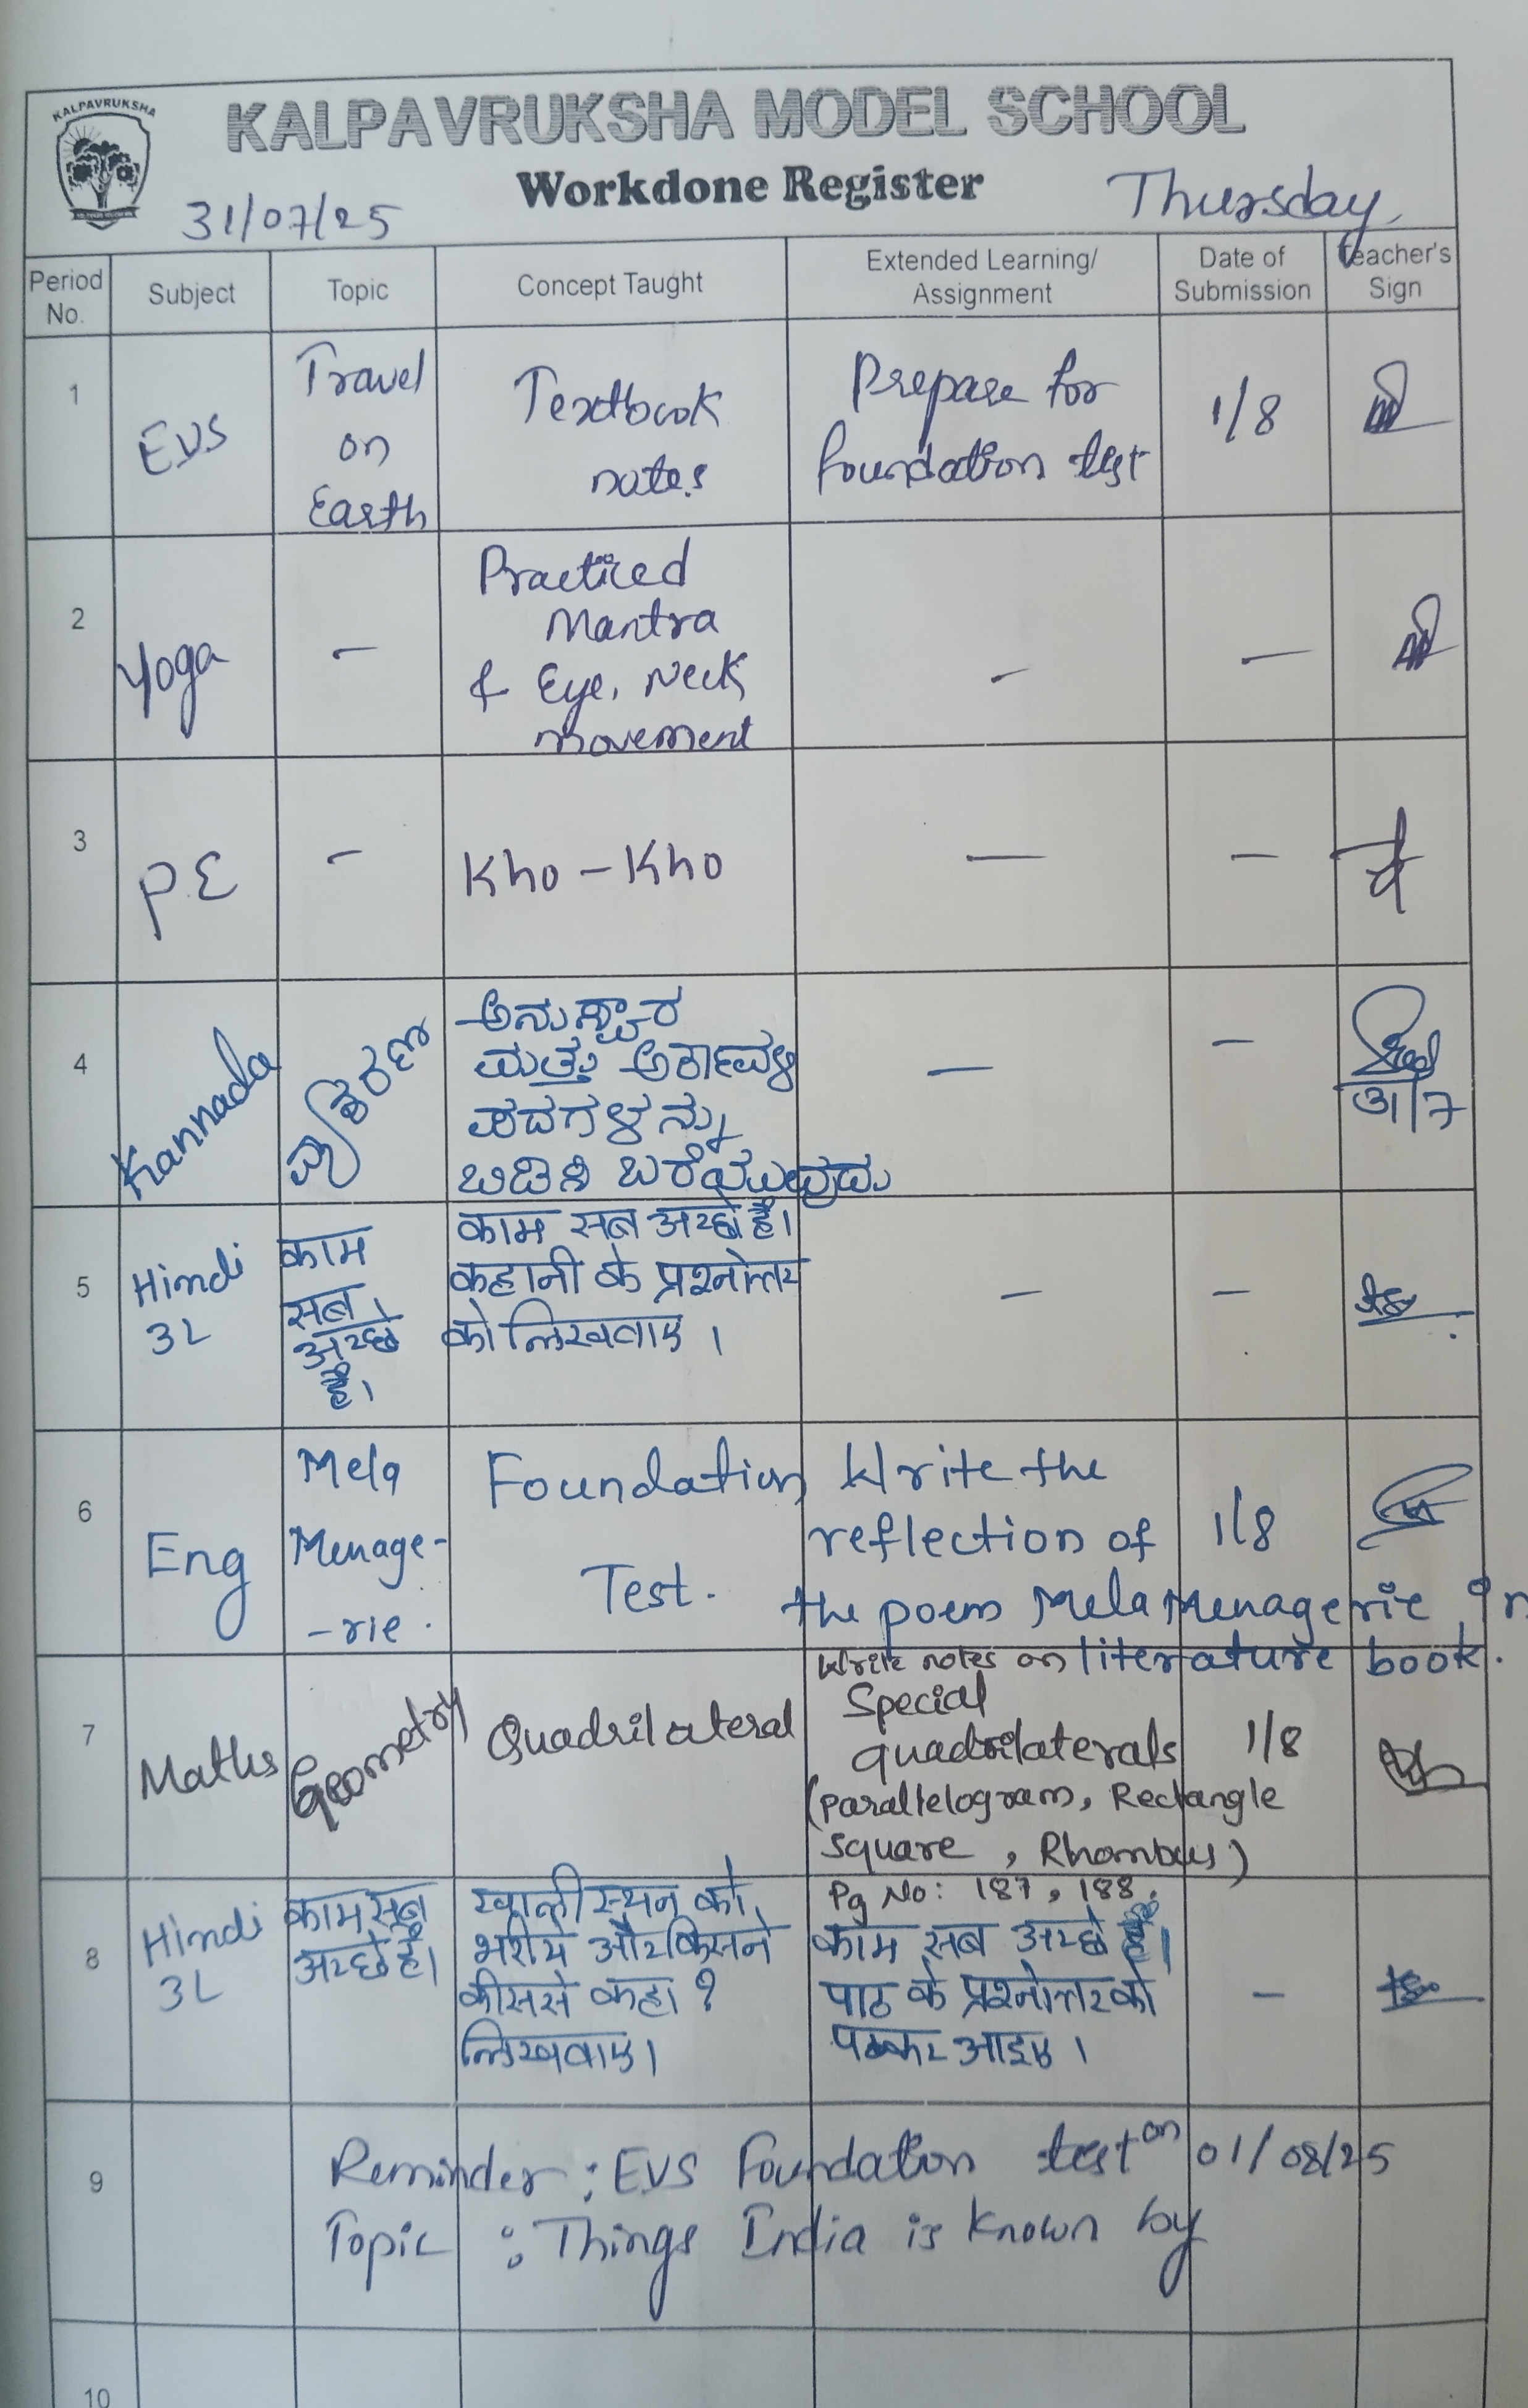 KALPAVRUKSHA
KALPAVRUKSHA MODEL SCHOOL
Workdone Register
31/07/25
Thursday
Period No.
Subject
Topic
Concept Taught
Extended Learning/
Assignment
Date of
Submission
Teacher's
Sign
1
EVS
Travel
on
Earth
Textbook
notes
Prepare for
foundation test
1/8
2
Yoga
-
Practiced
Mantra
& Eye, Neck
movement
-
-
3
PE
-
Kho - Kho
-
-
4
Kannada
ವ್ಯಾಕರಣ
ಅನುಸ್ವಾರ
ಮತ್ತು ಅರ್ಕಾವಳಿ
ಪದಗಳನ್ನು
ಬಿಡಿಸಿ ಬರೆಯುವುದು
-
-
31/7
5
Hindi
3L
काम
सब
अच्छे
है।
काम सब अच्छे है।
कहानी के प्रश्नोत्तर
को लिखवाए।
-
-
6
Eng
Mela
Menage-
-rie.
Foundation
Test.
Write the
reflection of
the poem Mela Menagerie in
literature book.
1/8
7
Maths
Geometry
Quadrilateral
Write notes on
Special
quadrilaterals
(parallelogram, Rectangle
Square, Rhombus)
Pg No: 187, 188.
1/8
8
Hindi
3L
काम सब
अच्छे है।
खाली स्थन को
भरीये और किसने
कीससे कहा?
लिखवाए।
काम सब अच्छे है।
पाठ के प्रश्नोत्तर को
पढकर आइए।
-
9
Reminder : EVS Foundation test on 01/08/25
Topic : Things India is known by
10